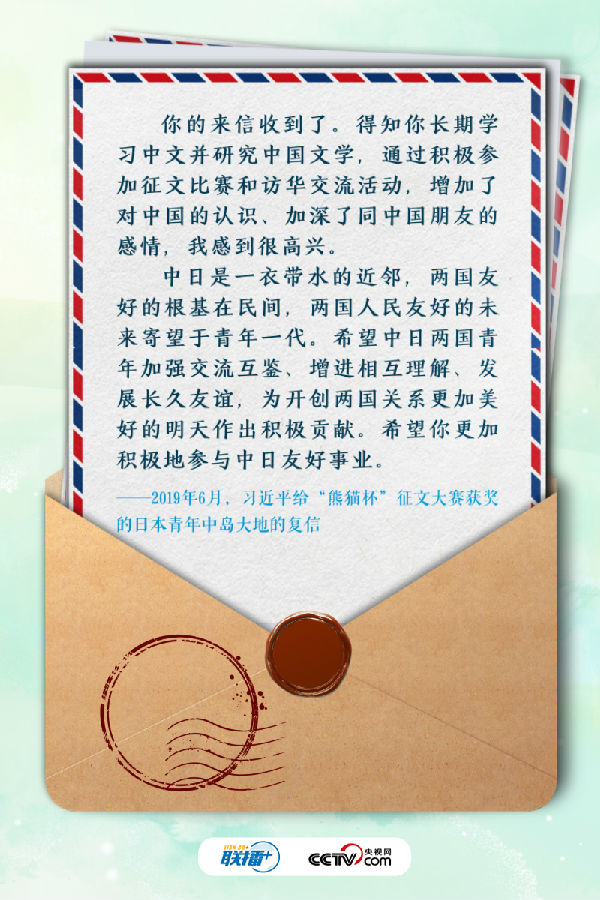 你的来信收到了。得知你长期学
习中文并研究中国文学，通过积极参
加征文比赛和访华交流活动，增加了
对中国的认识、加深了同中国朋友的
感情，我感到很高兴。
中日是一衣带水的近邻，两国友
好的根基在民间，两国人民友好的未
来寄望于青年一代。希望中日两国青
年加强交流互鉴、增进相互理解、发
展长久友谊，为开创两国关系更加美
好的明天作出积极贡献。希望你更加
积极地参与中日友好事业。
——2019年6月，习近平给“熊猫杯”征文大赛获奖
的日本青年中岛大地的复信
联播+
CCTV.com 央视网